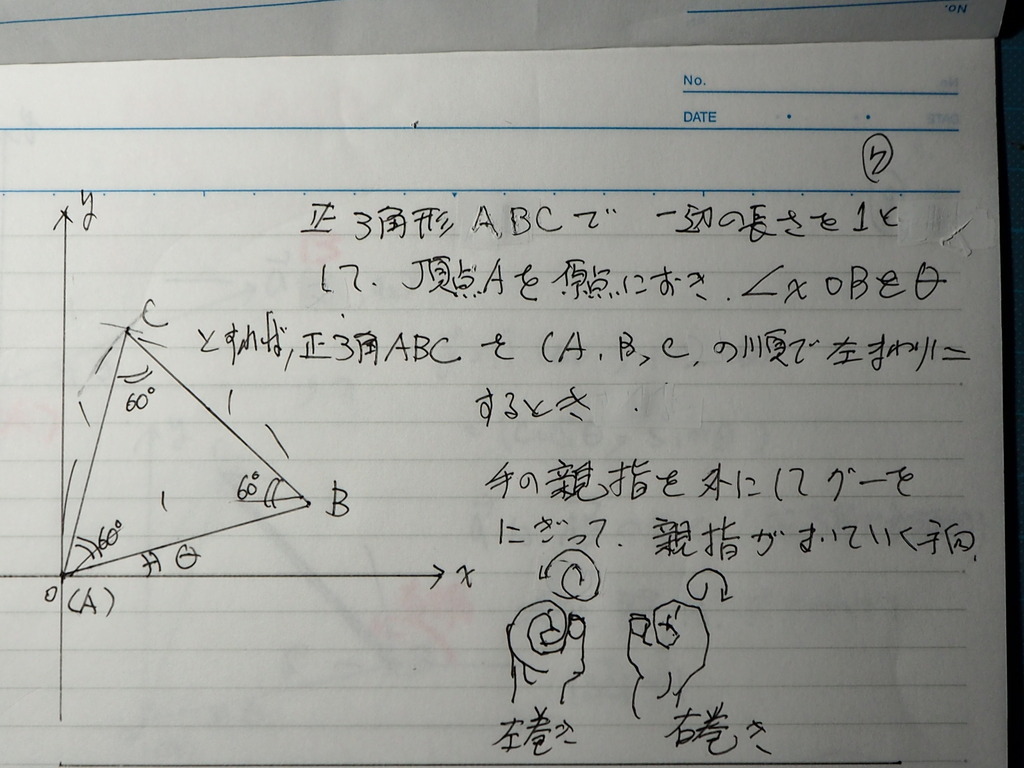 No.
No.
DATE
ウ
y
正3角形ABCで 一辺の長さを1と
して、頂点Aを原点におき、∠xOBをθ
とすれば、正3角ABCを(A,B,C,の順で左まわりに
するとき
C
60°
1
1
手の親指を外にしてグーを
60°
B
1
にぎって、親指がまいていく方向
60°
θ
x
O(A)
左巻き
右巻き